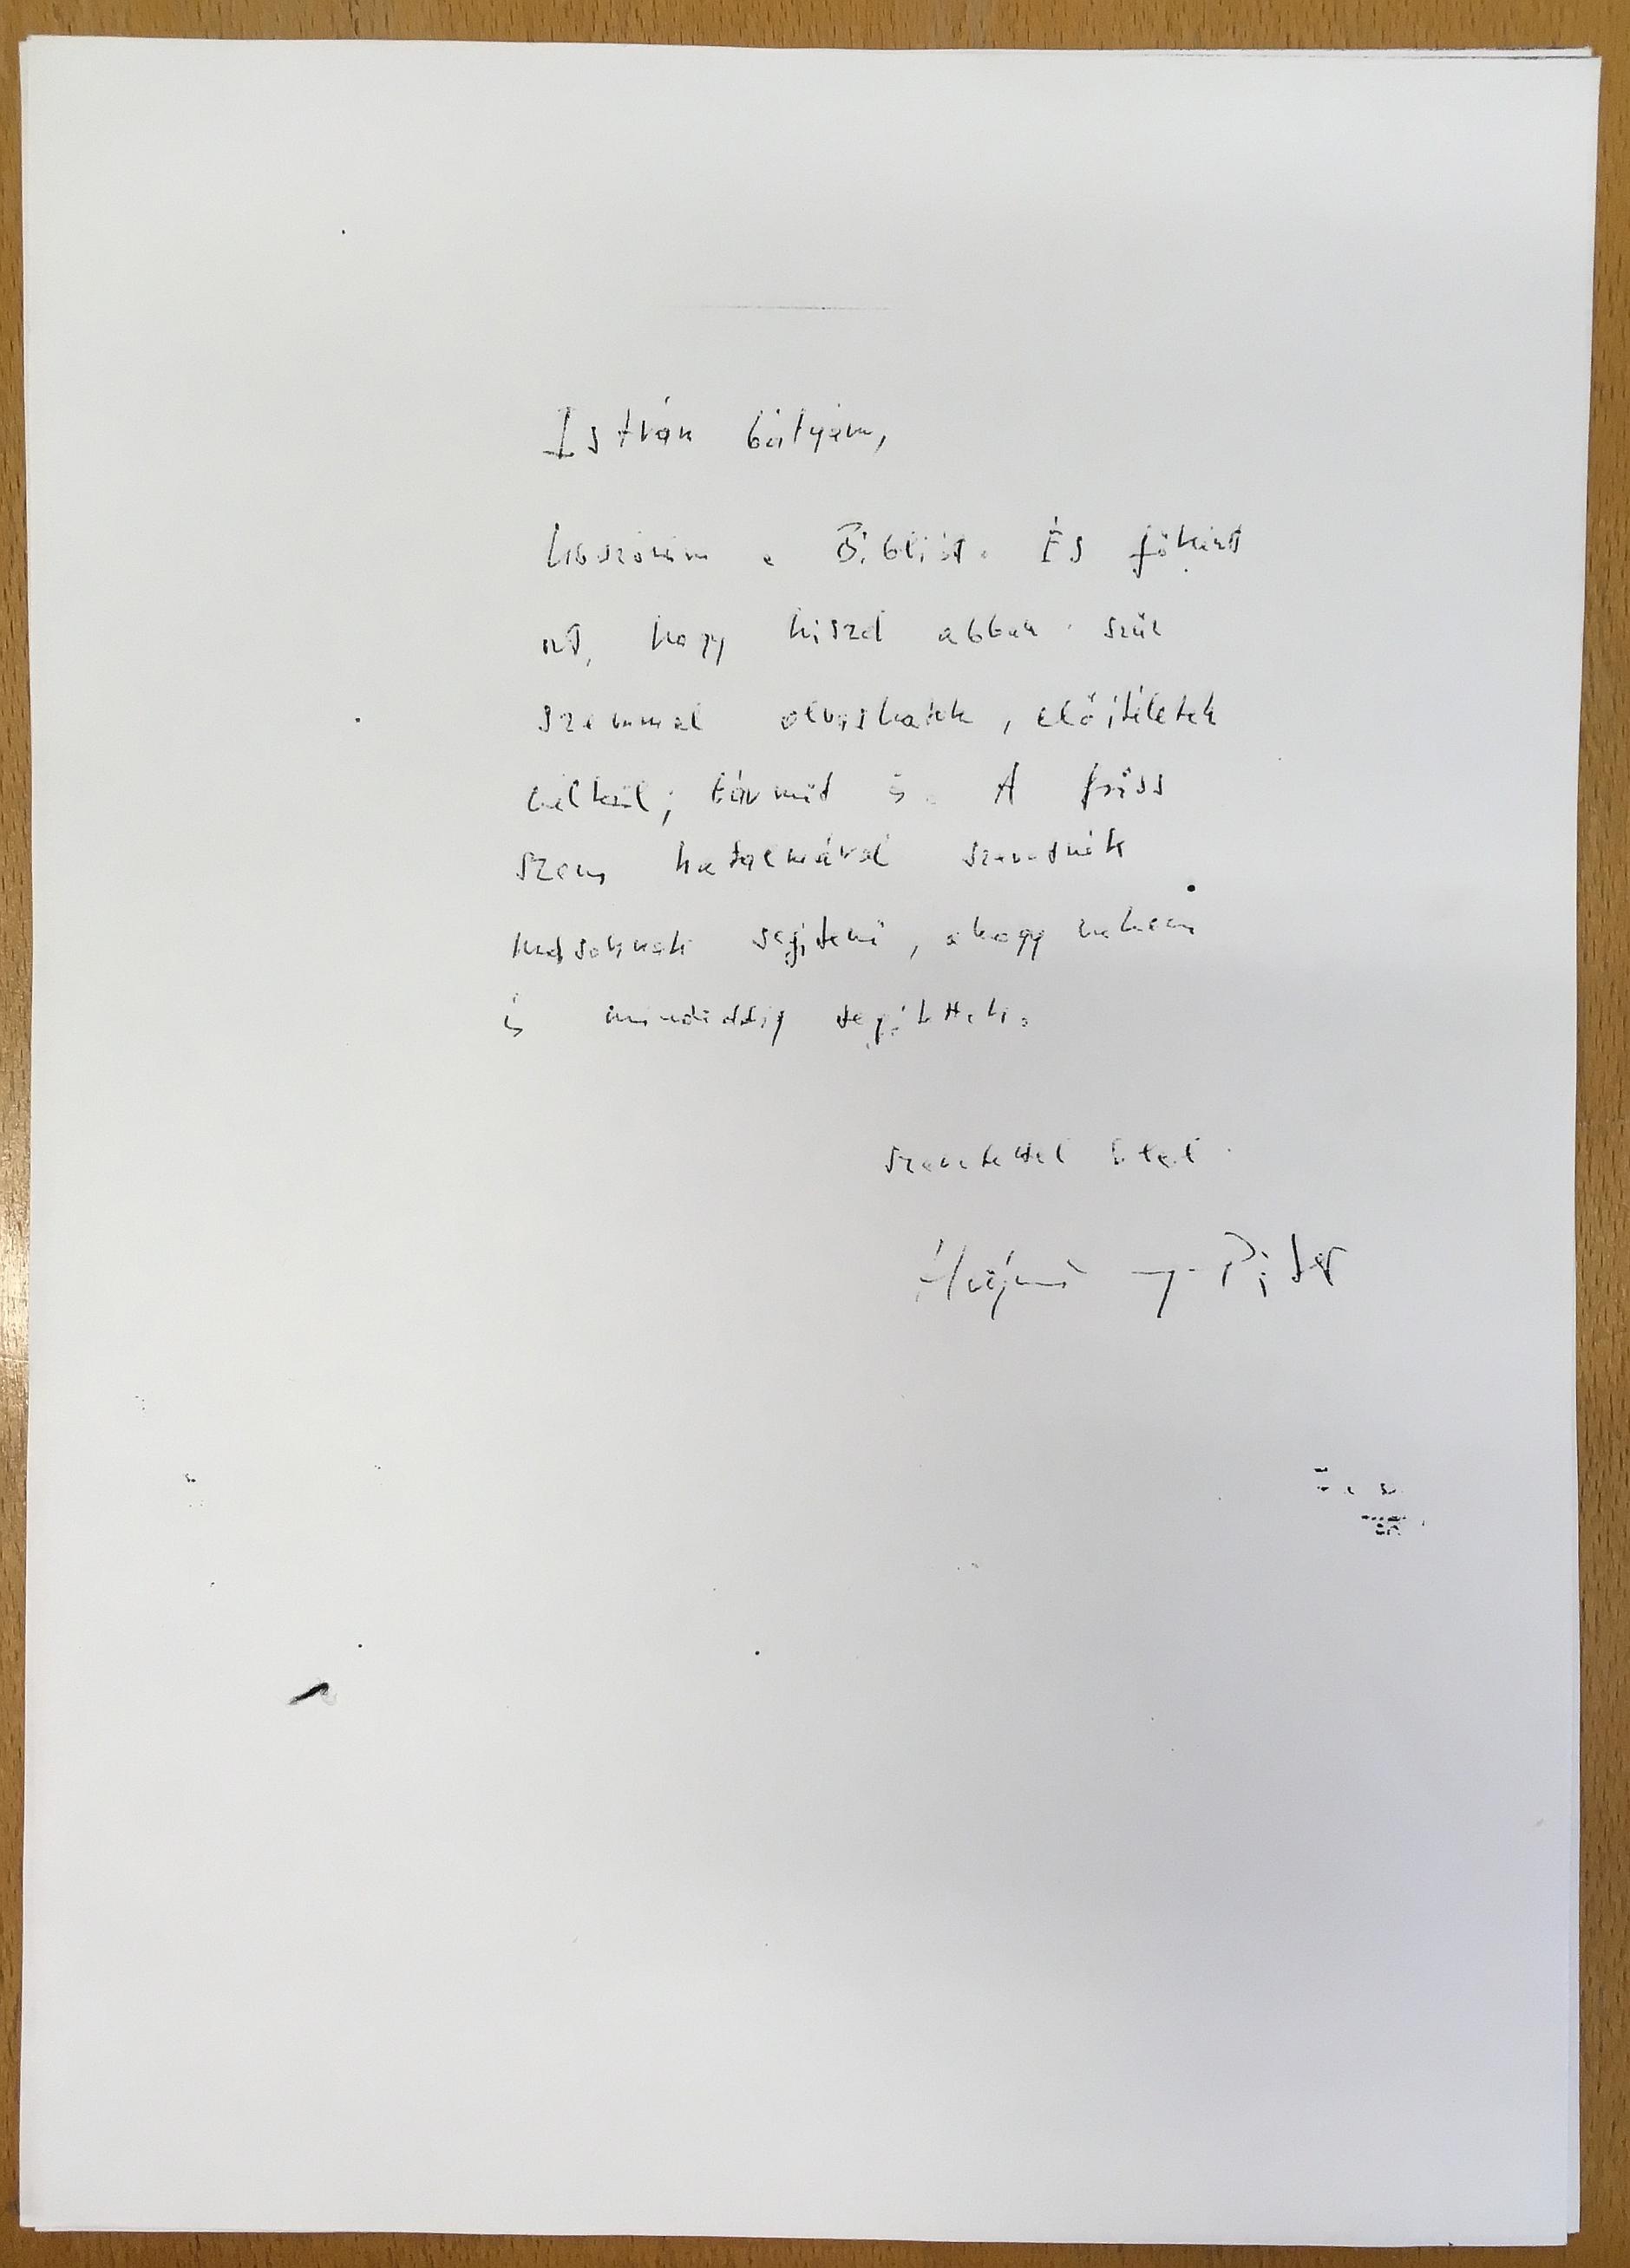 István bátyám,
köszönöm a Bibliát. És főként
azt, hogy hiszel abban szűz
szemmel olvashatok, előítéletek
nélkül; bármit is. A friss
szem hatalmával szeretnék
másoknak segíteni, ahogy nekem
is mindeddig segítettek.
Szeretettel ölel
Péter